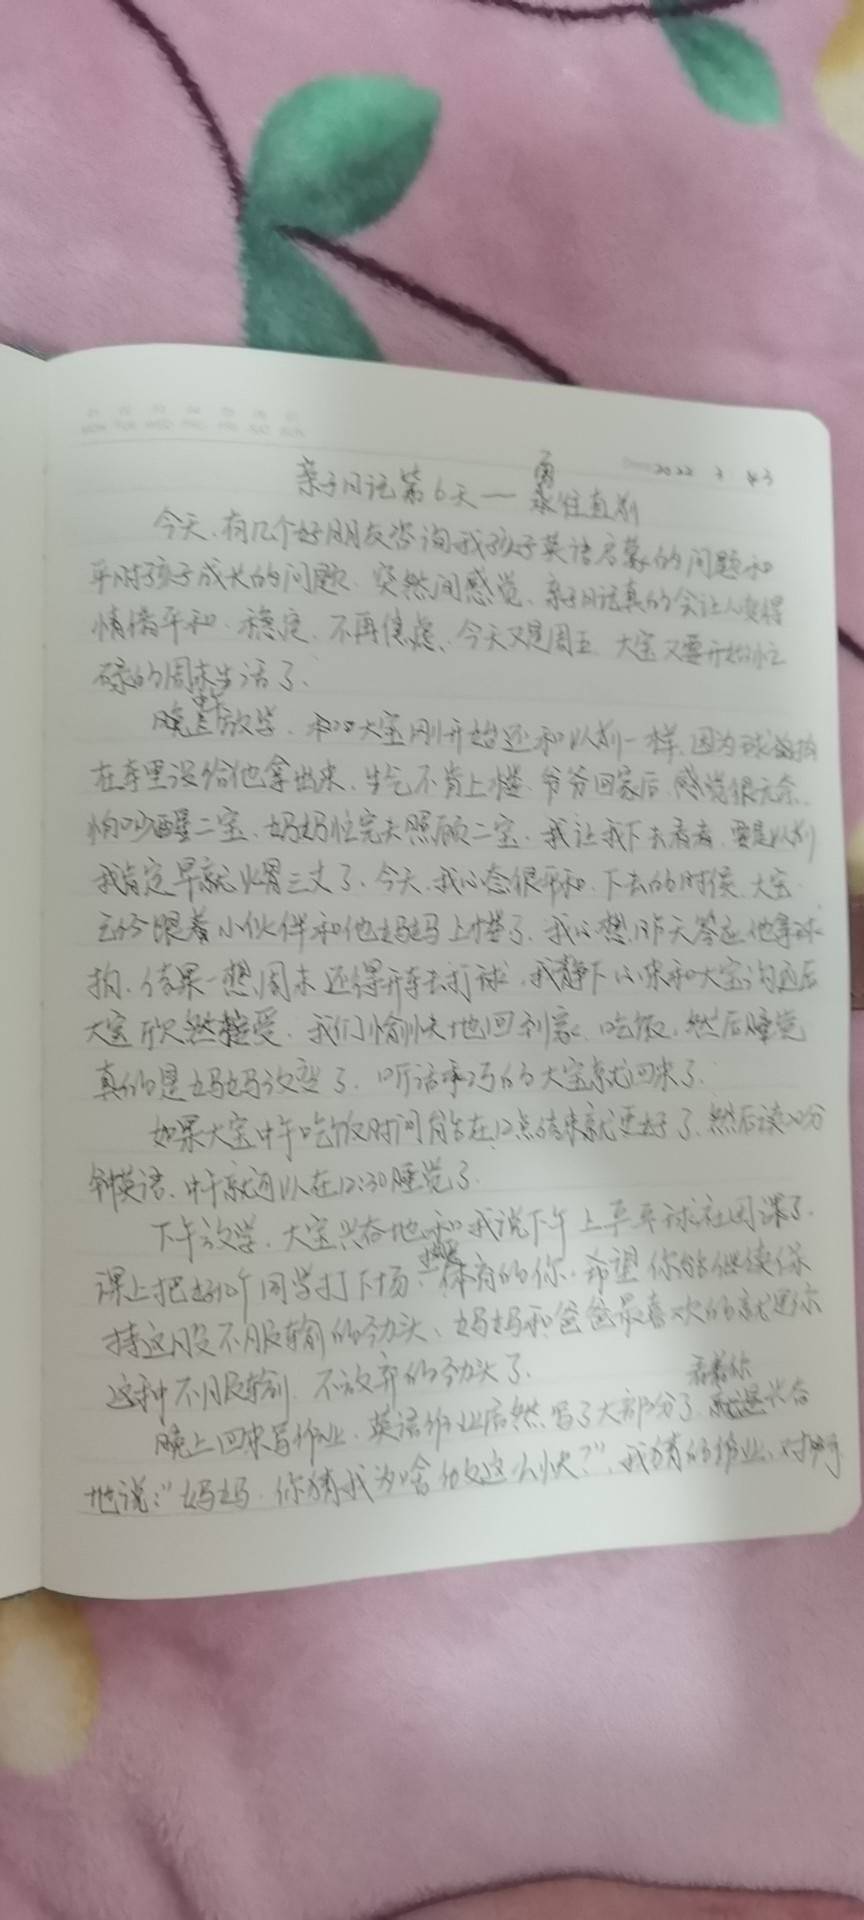 2022 3
亲子日记第6天一勇往直前
今天,有几个好朋友咨询我孩子英语启蒙的问题和
平时孩子成长的问题,突然间感觉,亲子日记真的会让人变得
情绪平和,稳定,不再焦虑,今天又是周五,大宝又要开始忙
碌的周末生活了,
放学,大宝刚开始还和以前一样,因为球拍
在车里没给他拿出来,生气不肯上楼,爷爷回家后,感觉很无奈,
怕吵醒二宝,妈妈忙完去照顾二宝,我让我下去看看,要是以前
我肯定早就火冒三丈了,今天,我心态很平和,下去的时候,大宝
已经跟着小伙伴和他妈妈上楼了,我心想,昨天答应他拿球
拍,结果一想周末还得开车去打球,我静下心来和大宝沟通后
大宝欣然接受,我们愉快地回到家,吃饭,然后睡觉
真的是妈妈改变了,听话乖巧的大宝就回来了,
如果大宝中午吃饭时间能在12点结束就更好了,然后读20分
钟英语,中午就可以在12:30睡觉了,
下午放学,大宝兴奋地和我说下午上乒乓球社团课了,
课上把好几个同学打下场,体育的你,希望你能继续保
持这股不服输的劲头,妈妈和爸爸最喜欢的就是你
这种不服输,不放弃的劲头了,
看着你
晚上回来写作业,英语作业居然写了大部分了,兴奋
地说:"妈妈,你猜我为啥做这么快?",我猜的作业,对